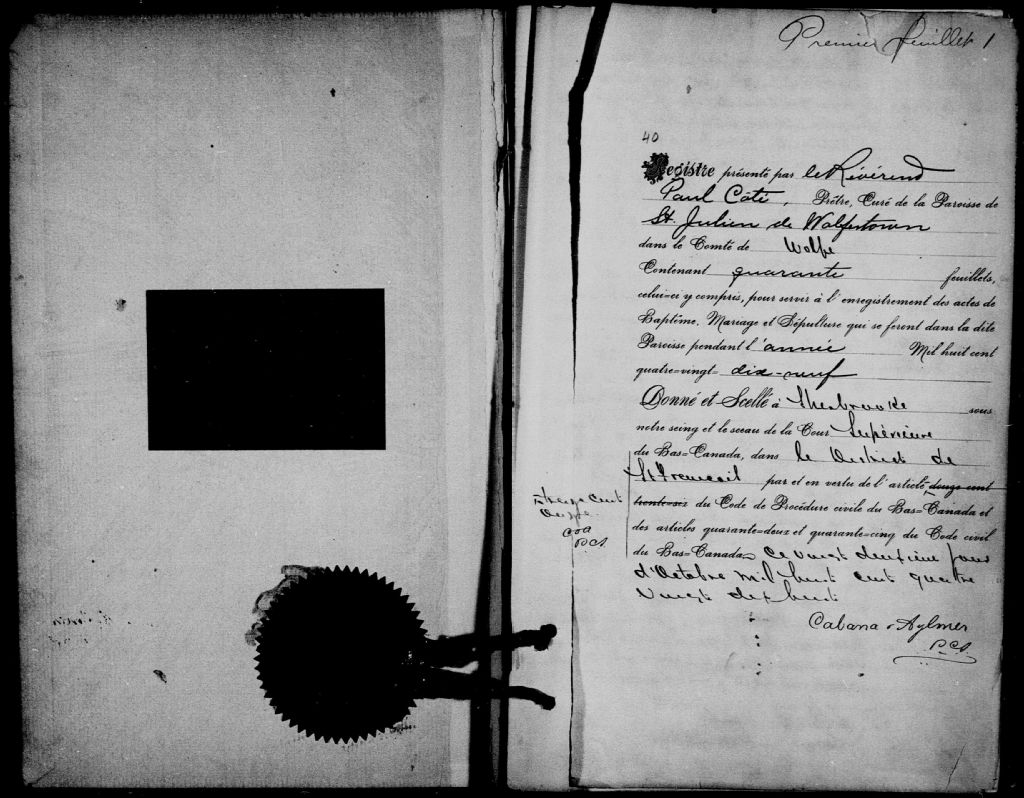 Premier feuillet 1
40
Registre présenté par le Révérend
Paul Côté, Prêtre, Curé de la Paroisse de
St. Julien de Wolfestown
dans le Comté de Wolfe
Contenant quarante feuillets,
celui=ci y compris, pour servir à l'enregistrement des actes de
Baptême, Mariage et Sépulture qui se feront dans la dite
Paroisse pendant l'année Mil huit cent
quatre=vingt= dix-neuf
Donné et Scellé à Sherbrooke sous
notre seing et le sceau de la Cour Supérieure
du Bas=Canada, dans le District de
St François par et en vertu de l'article douze cent
trente=six du Code de Procédure civile du Bas=Canada et
des articles quarante=deux et quarante=cinq du Code civil
du Bas=Canada, ce vingt deuxième jour
d'Octobre mil huit cent quatre
vingt dix huit
treize cent
onze
C & A
P.C.S.
Cabana & Aylmer
P.C.S.